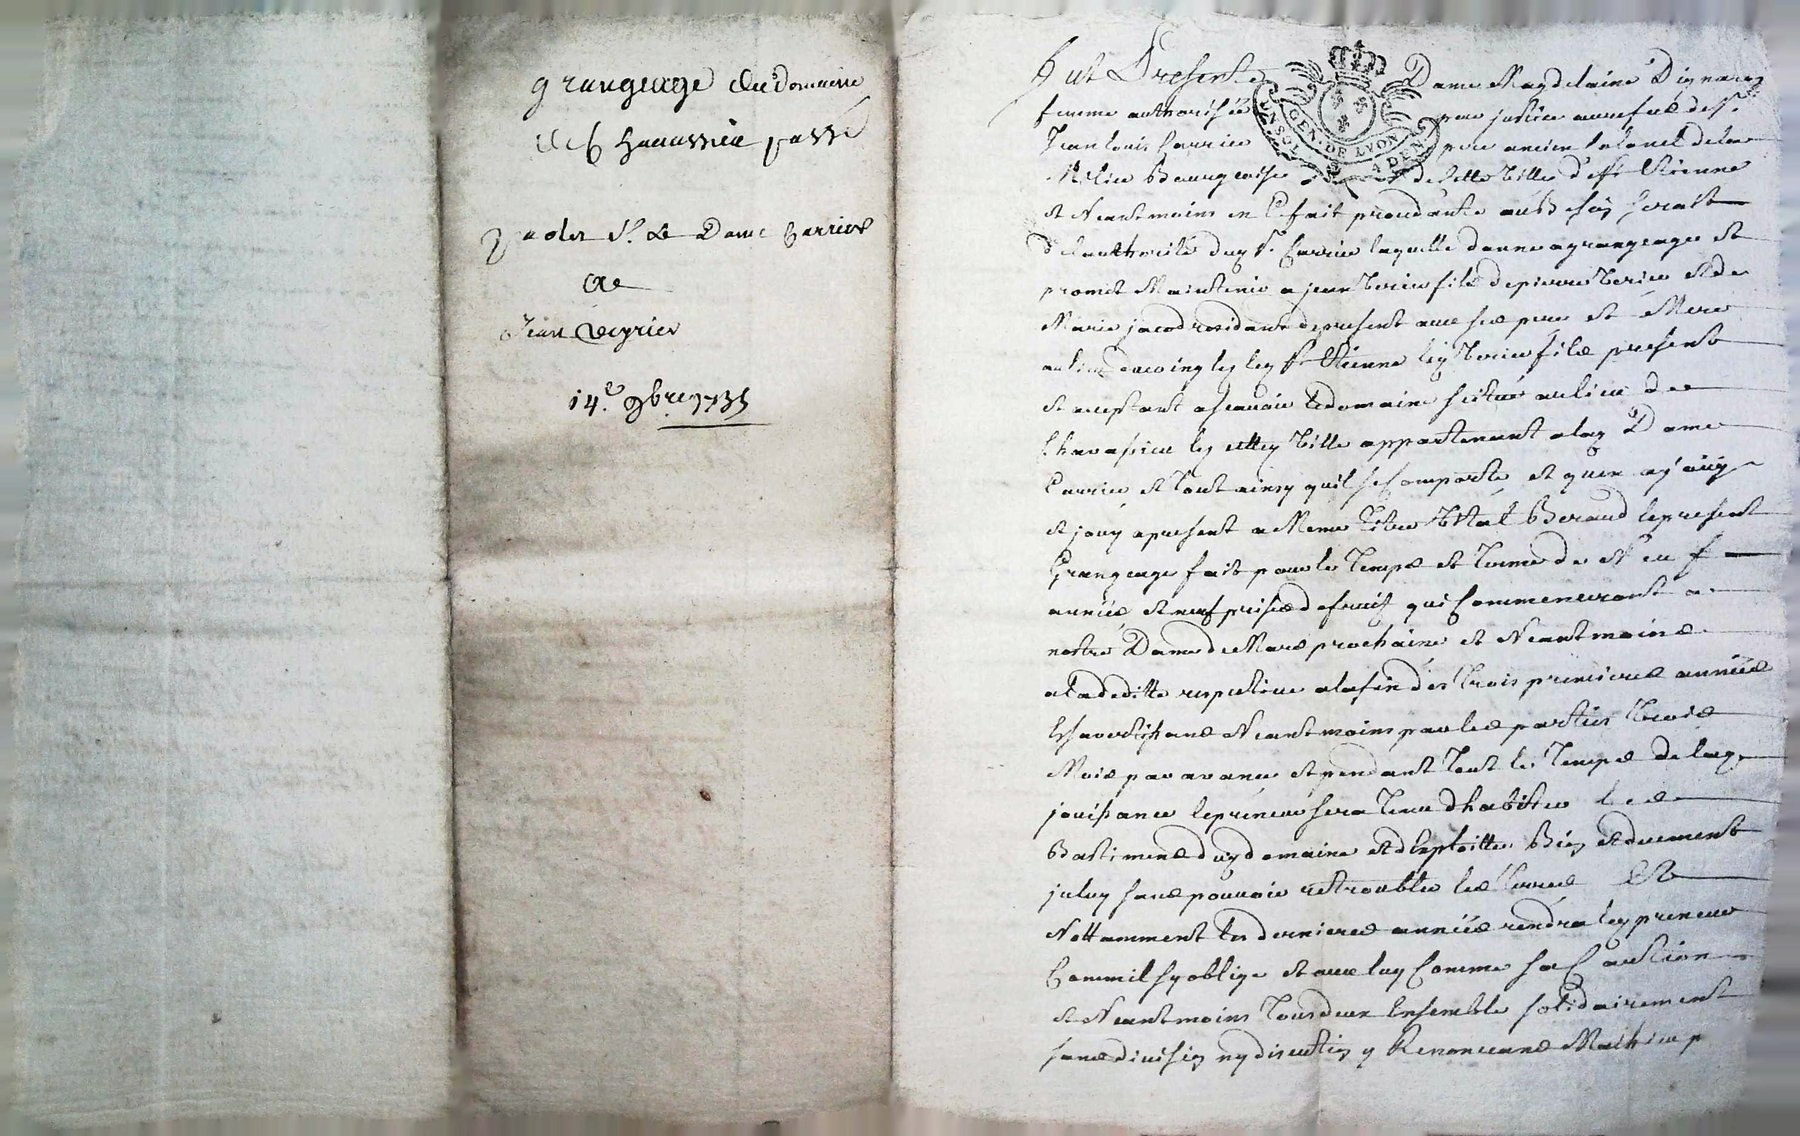 grangeage du Domaine
de Chavassieu passé
par les Sr. & Dame Carrier
A
Jean Veyrier
14.e 9bre 1735
Fut Presente Dame Magdelaine
femme authorisée par justice au refus de Sr
Jean Louis Carrier pere ancien Colonel de la
Milice Bourgeoise de cette Ville d'St Etienne
et Neantmoins en Ce fait procedante aussy
de l'authorité dud Sr. Carrier laquelle donne a grangeage et
promet Maintenir a jean Verier fils de pierre Verier et de
Marie jacod residant de present avec ses pere et Mere
St Etienne led Verier fils present
et acceptant a scavoir le domaine scitué au lieu de
Chavassieu les cette Ville appartenant a lad Dame
Carrier et tout ainsy quil se Comporte et quen a jouy
et jouy a present a Meme titre Vital Beraud le present
Grangeage fait pour le Temps et terme de Neuf
années et neuf prises de fruits qui Commenceront a
nostre Dame de Mars prochaine et Neantmoins
a la deditte respective a la fin des trois premieres années
Neantmoins par les parties trois
Mois par avance et pendant tout le Temps de lad
jouissance le preneur sera tenu dhabiter les
Bastimens dud domaine et dexploitter Bien et duement
iceluy sans pouvoir retroubler les terres Et
Nottamment les dernieres années rendra led preneur
Comme il sy oblige et avec luy Comme sa Caution
et Neantmoins tous deux Ensemble solidairement
sans division ny discution y Renonceans Mathieu